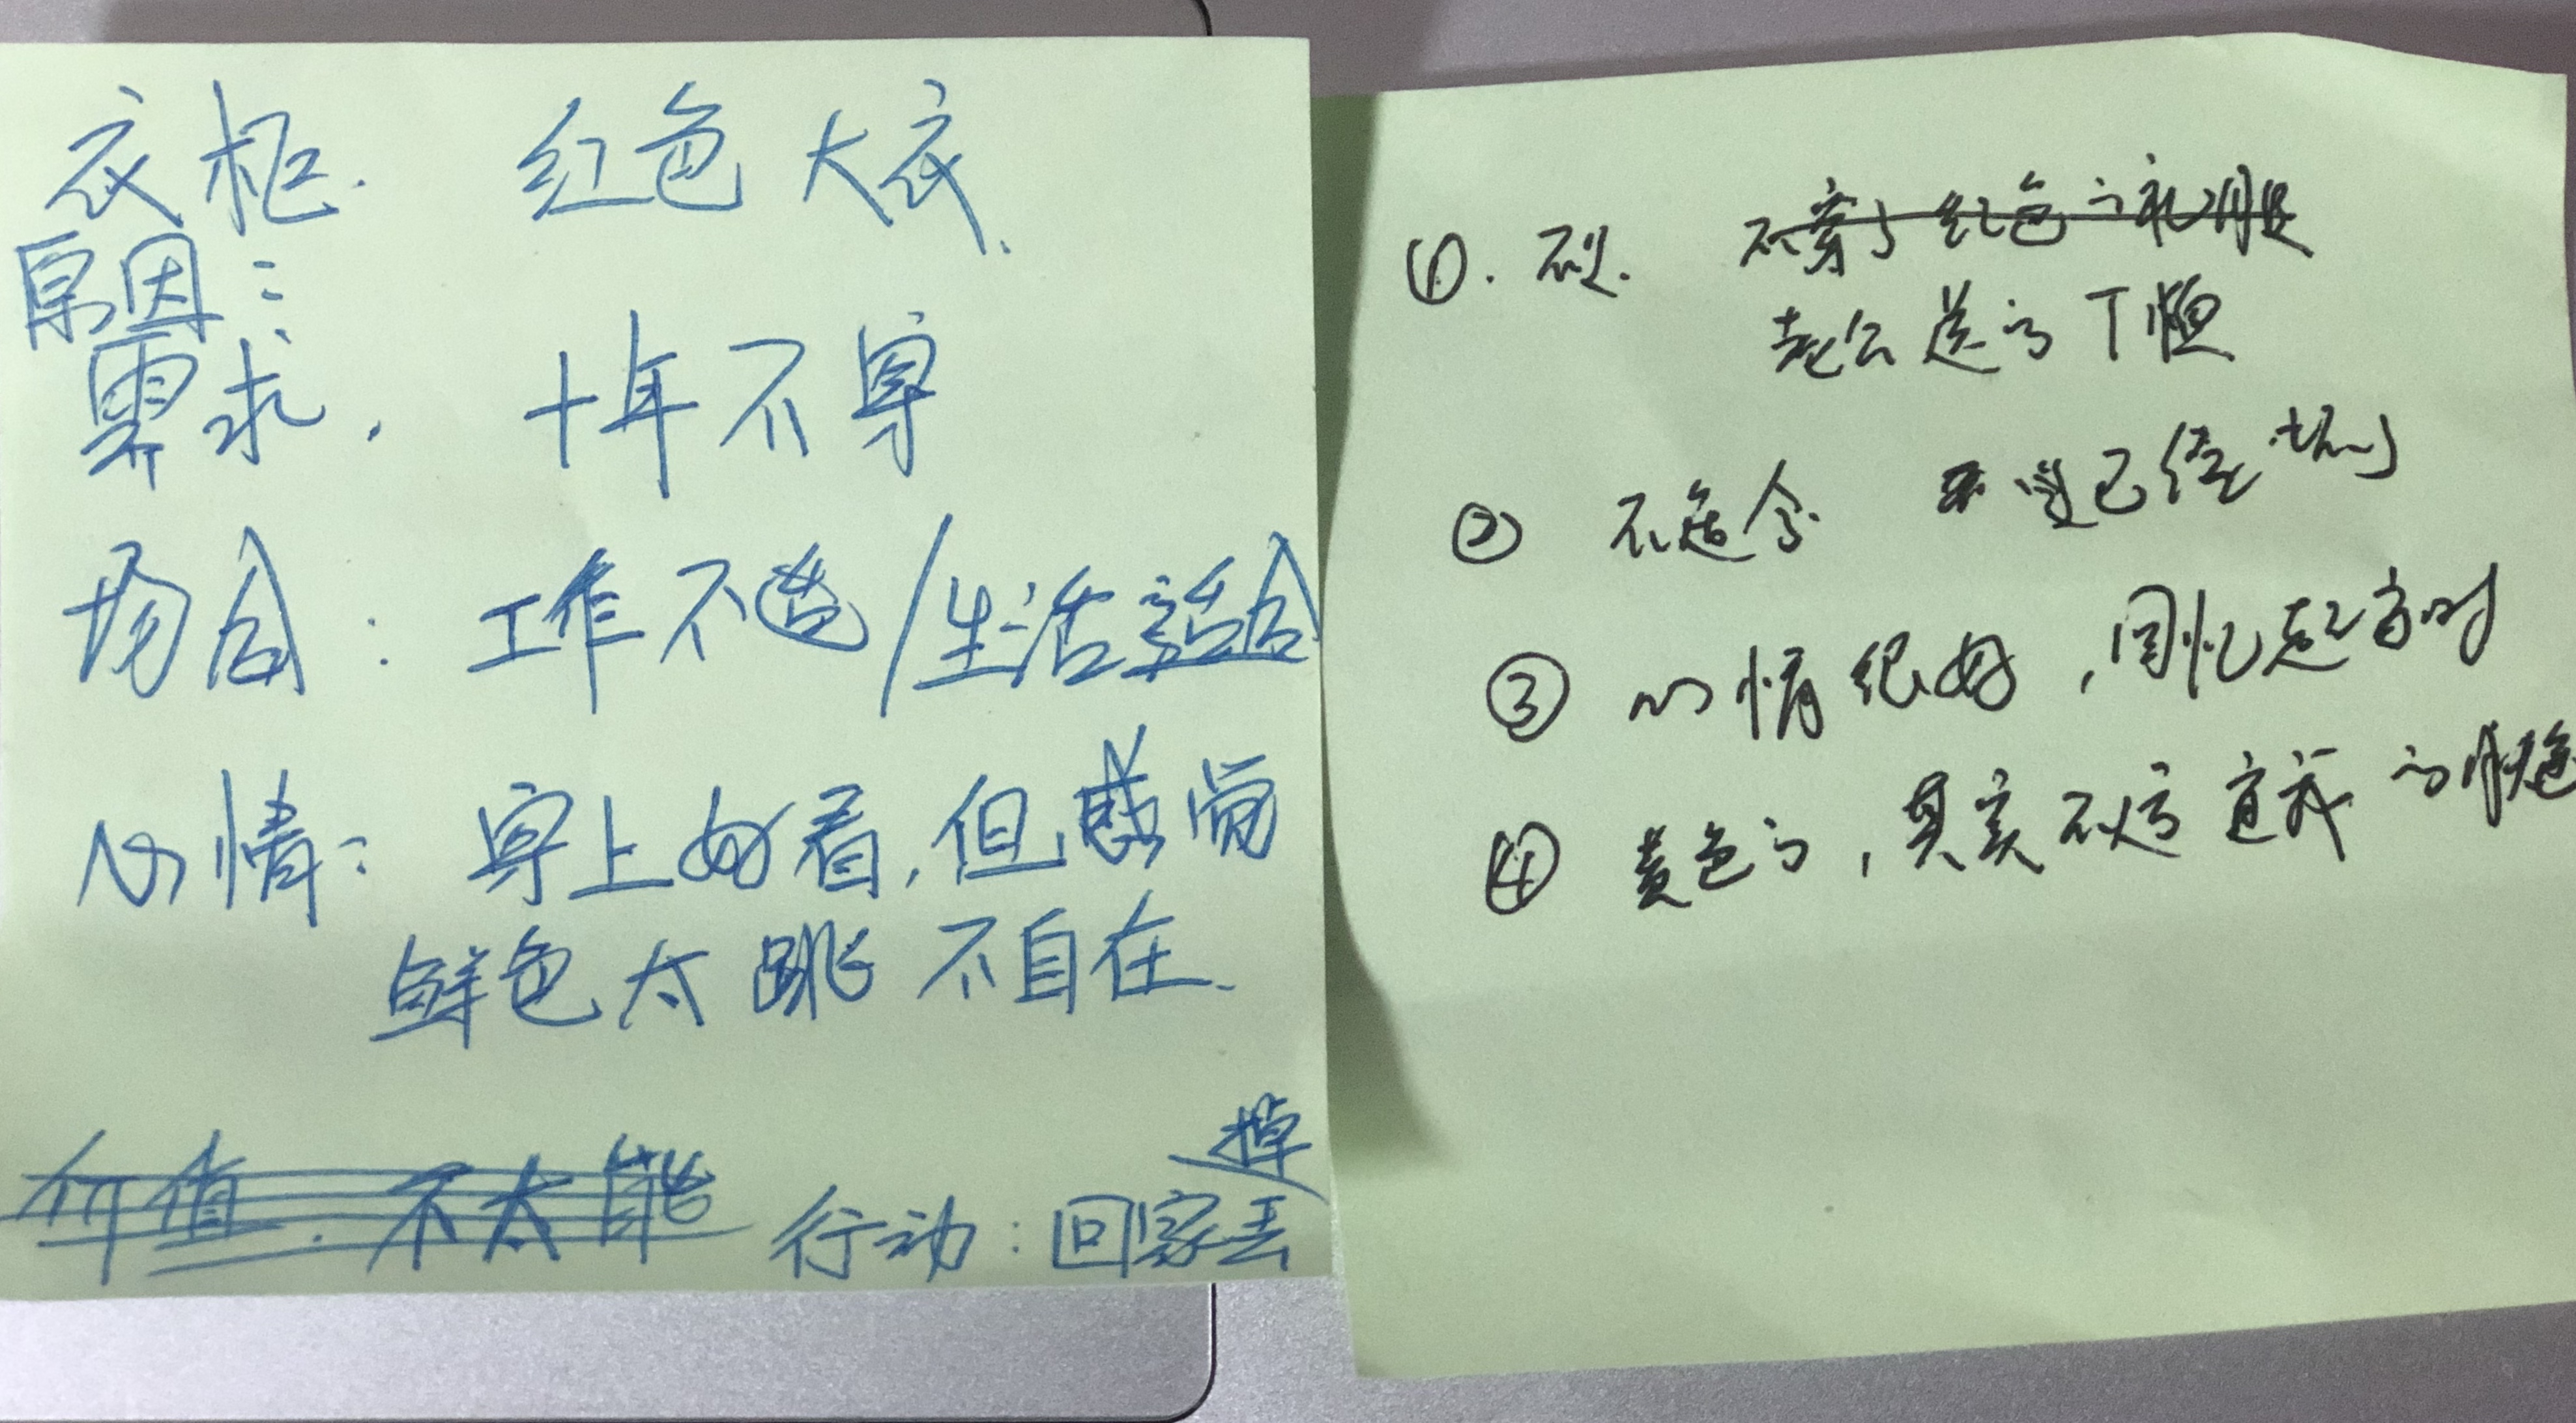 衣柜. 红色大衣.
原因:
需求, 十年不穿
场合: 工作不适/生活适合
心情: 穿上好看,但感觉
鲜色太跳 不自在.
价值. 不太能
行动: 回家丢
掉
①. 不穿了红色的礼服
老公送的T恤
② 不适合 已经坏了
③ 心情很好,回忆起当时
④ 黄色的,其实不适合我的肤色